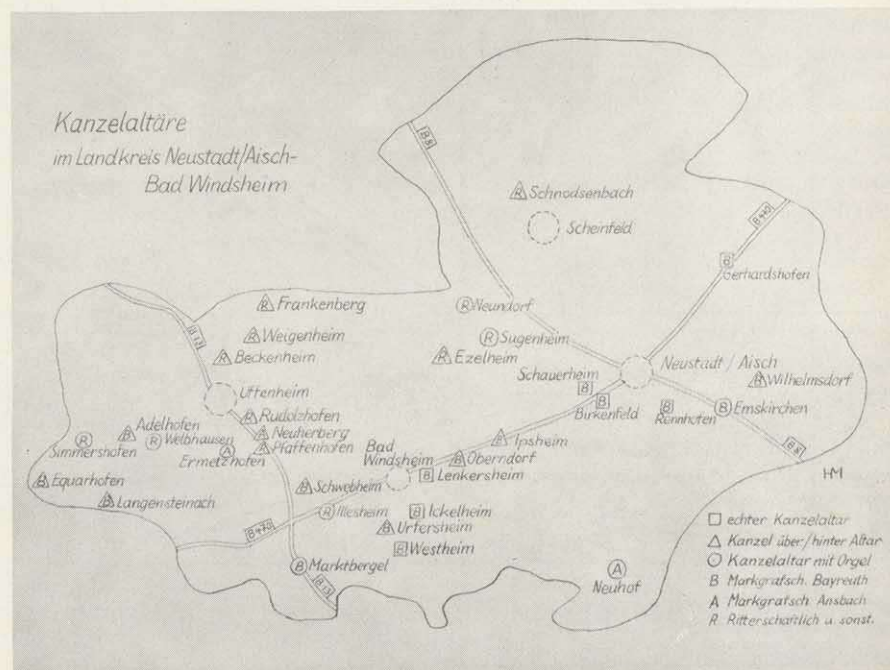 Kanzelaltäre
im Landkreis Neustadt/Aisch-
Bad Windsheim
B8
R Schnodsenbach
Scheinfeld
B470
B
Gerhardshofen
R Frankenberg
R Neundorf
R Weigenheim
R Sugenheim
B13
R Beckenheim
R Ezelheim
Neustadt/Aisch
Schauerheim
B
B Wilhelmsdorf
Uffenheim
B
Birkenfeld
B
Rennhofen
B Emskirchen
R Rudolzhofen
Adelhofen
B
R Welbhausen
Neuherberg
Ipsheim
R
Simmershofen
A
Ermetzhofen
Pfaffenhofen
Bad
Windsheim
B Oberndorf
B8
B Lenkersheim
HM
B
Equarhofen
B Schwebheim
B Langensteinach
R Illesheim
B Ickelheim
B Urfersheim
B470
B Westheim
B Marktbergel
A
Neuhof
B13
echter Kanzelaltar
Kanzel über/hinter Altar
Kanzelaltar mit Orgel
B Markgrafsch. Bayreuth
A Markgrafsch Ansbach
R Ritterschaftlich u. sonst.